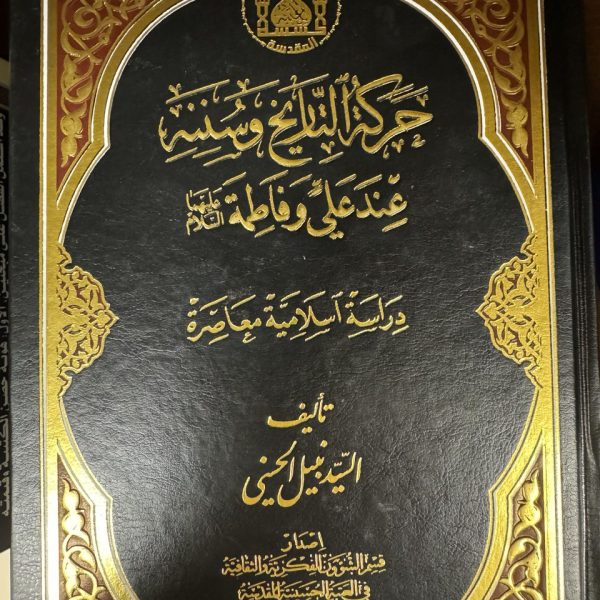 المقدسة
حَركَةُ التَّاريخ وَسُننِه
عِندَ عَليٍّ وَفَاطِمَة عليهما السَّلام
دِرَاسَةٌ اسلاميَةٌ معَاصِرَة
تأليف
السيّد نبيل الحسني
إصدار
قسم الشؤون الفكرية والثقافية
في العتبة الحسينية المقدسة